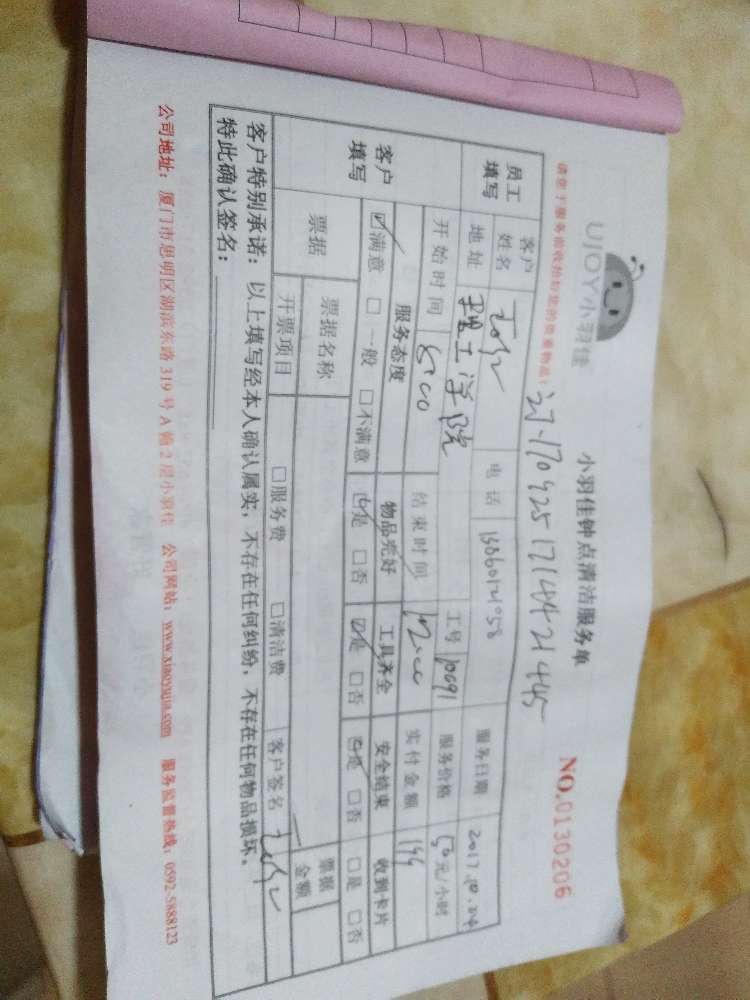 UJOY小羽佳 小羽佳钟点清洁服务单 NO.0130206
请您于服务前收拾好您的贵重物品!
员工填写 客户姓名 电话 服务日期 2017
地址 理工学院 工号 10691 服务价格 50元/小时
开始时间 8:00 结束时间 12:00 实付金额 199
客户填写 服务态度 物品完好 工具齐全 安全结束 收到卡片
☑满意 □一般 □不满意 ☑是 □否 ☑是 □否 ☑是 □否 □是 □否
票据 票据名称 票据金额
开票项目 □服务费 □清洁费 客户签名
客户特别承诺:以上填写经本人确认属实,不存在任何纠纷,不存在任何物品损坏。
特此确认签名:
公司地址:厦门市思明区湖滨东路319号A幢2层小羽佳 公司网站:www.xiaoyujia.com 服务监督热线:0592-5888123